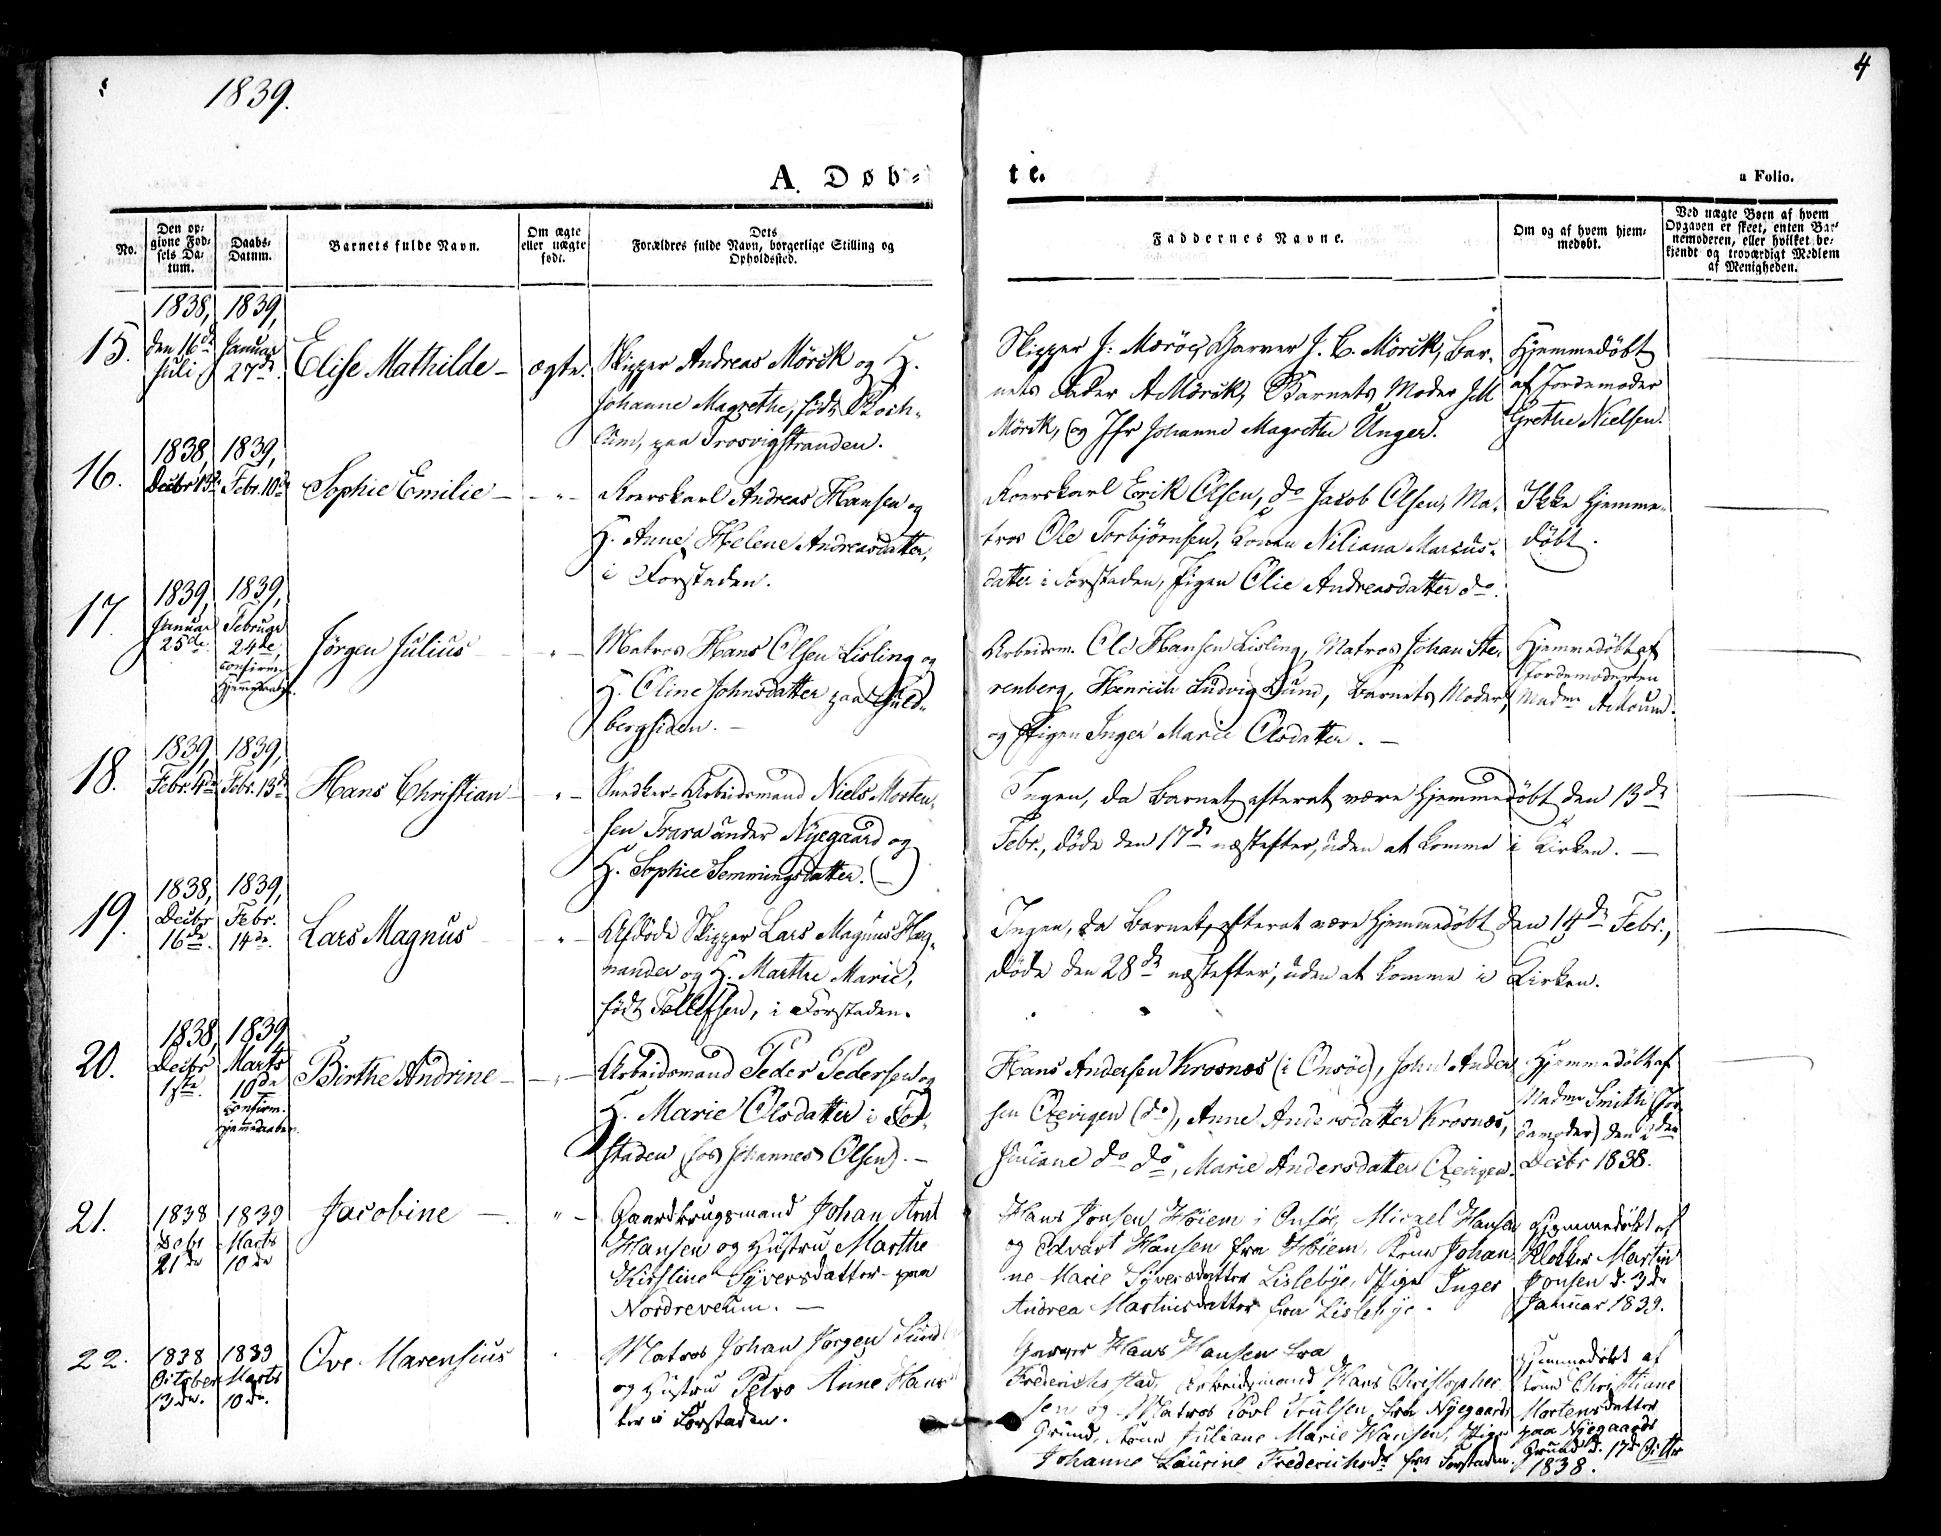 1839.
4
A. Døb-
te.
a Folio.
No.
Den op-
givne Fød-
sels Da-
tum.
Daabs-
Datum.
Barnets fulde Navn.
Om ægte
eller uægte
født.
Dets
Forældres fulde Navn, borgerlige Stilling og
Opholdssted.
Faddernes Navne.
Om og af hvem hjem-
medøbt.
Ved uægte Børn af hvem
Opgaven er skeet, enten Bar-
nemoderen, eller hvilket be-
kjendt og troværdigt Medlem
af Menigheden.
15.
1838,
den 16de
Juli
1839,
Januar
27de.
Elise Mathilde –
ægte.
Skipper Andreas Mörck og H.
Johanne Magrethe, født
paa Trosvigstranden.
Skipper J. Garver J. C. Mörck, Bar-
nets Fader A Mörck, Barnets Moder J M
Mörck, og Jfr Johanne Magrethe Unger.
Hjemmedøbt
af Jordemoder
Grethe Nielsen.
16.
1838,
Decbr 13de
1839,
Febr. 10de
Sophie Emilie –
– " –
Roerskarl Andreas Hansen og
H. Anne Helene Andreasdatter,
i Forstaden.
Roerskarl Erik Olsen, do Jacob Olsen, Ma-
tros Ole Torbjørnsen, Konen Niliana Marcus-
datter i Forstaden, Pigen Olie Andreasdatter do.
Ikke Hjemme-
døbt.
17.
1839,
Januar
25de
1839,
Februar
24de,
confirm.
Hjemmedaab.
Jørgen Julius
– " –
Matros Hans Olsen Lisling og
H. Oline Johnsdatter paa Guld-
bergsiden. –
Arbeidsm. Ole Hansen Lisling, Matros Johan Ste-
renberg, Henrich Ludvig Lund, Barnets Moder,
og Pigen Inger Marie Olsdatter. –
Hjemmedøbt af
Jordemoderen
Madme A Moum.
18.
1839,
Febr. 4de
1839,
Febr. 13de
Hans Christian –
– " –
Snedker-Arbeidsmand Niels Morten-
sen Trara under Nyegaard og
H. Sophie Semmingsdatter. (–)
Ingen, da Barnet, efterat være Hjemmedøbt den 13de
Febr., døde den 17de næstefter, uden at komme i Kirken. –
19.
1838,
Decbr
16de.
1839,
Febr.
14de.
Lars Magnus
– " –
Afdøde Skipper Lars Magnus
nander og H. Marthe Marie,
født Tollefsen, i Forstaden.
Ingen, da Barnet, efterat være Hjemmedøbt den 14de Febr.,
døde den 28de næstefter, uden at komme i Kirken.
20.
1838,
Decbr
1ste
1839,
Marts
10de
confirm.
Hjemmedaaben.
Birthe Andrine –
– " –
Arbeidsmand Peder Pedersen og
H. Marie Olsdatter i For-
staden (hos Johannes Olsen). –
Hans Andersen Krosnæs (i Onsöe), John Ander
sen Ozevigen (do), Anne Andersdatter Krosnæs,
Juliane do do, Marie Andersdatter Ozevigen.
Hjemmedøbt af
Madme Smith (Jor
demoder) den 2den
Decbr 1838.
21.
1838
Decbr
21de
1839
Marts
10de
Jacobine –
" –
Gaardbrugsmand Johan Arnt
Hansen og Hustru Marthe
Kirstine Syversdatter paa
Nordreveum. –
Hans Jonsen Höiem i Onsöe, Micael Hansen
og Edvart Hansen fra Höiem, Kone Johan-
ne Marie Syversdatter Lislebye, Pige Inger
Andrea Martinsdatter fra Lislebye.
Hjemmedøbt af
Klokker Martin
Jonsen d. 3de
Januar 1839.
22.
1838
October
13de.
1839
Marts
10de.
Ove Marensius
Matros Johan Jørgen Lund
og Hustru Petro Anne Hans
ter i Forstaden.
Garver Hans Hansen fra
Frederichsstad, Arbeidsmand Hans Christopher
sen og Matros Povl Trulsen fra Nyegaards
Grund, Kone Juliane Marie Hansen, Pige
Johanne Laurine Frederichsdr fra Forstaden.
Hjemmedøbt af
Kone Christiane
Mortensdatter
paa Nyegaards
Grund d. 17de Octbr
1838.